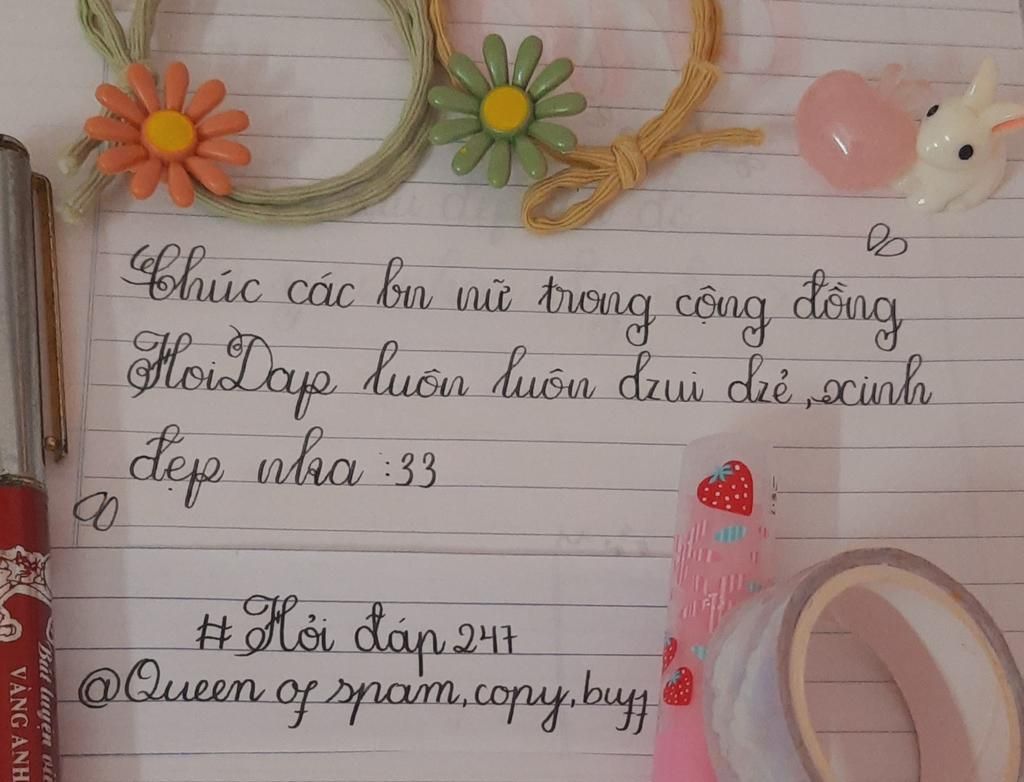 Chúc các bn nữ trong cộng đồng
HoiDap luôn luôn dzui dzẻ, xinh
đẹp nha :33
#Hỏi đáp 247
@Queen of spam, copy, buff
Bút luyện
VÀNG ANH